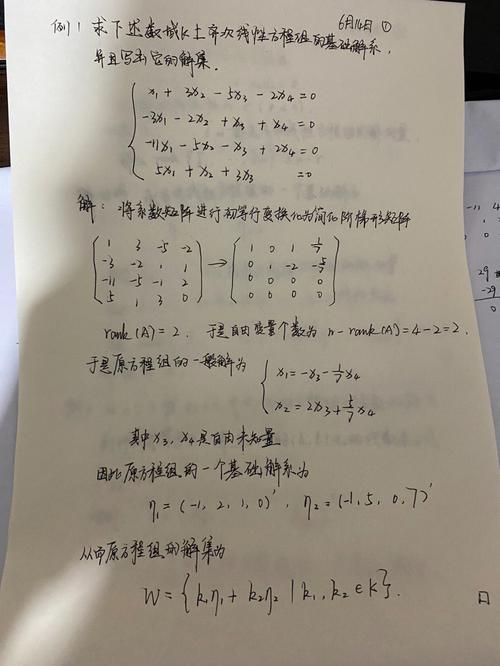 6月14日 ①
例1 求下述数域K上齐次线性方程组的基础解系,
并且写出它的解集.
x₁ + 3x₂ - 5x₃ - 2x₄ = 0
-3x₁ - 2x₂ + x₃ + x₄ = 0
-11x₁ - 5x₂ - x₃ + 2x₄ = 0
5x₁ + x₂ + 3x₃ = 0
解: 将系数矩阵进行初等行变换化为简化阶梯形矩阵
( 1 3 -5 -2 ) → ( 1 0 1 1/7 )
( -3 -2 1 1 ) ( 0 1 -2 -5/7 )
( -11 -5 -1 2 ) ( 0 0 0 0 )
( 5 1 3 0 ) ( 0 0 0 0 )
rank(A) = 2. 于是自由变量个数为 n - rank(A) = 4 - 2 = 2.
于是原方程组的一般解为
x₁ = -x₃ - 1/7 x₄
x₂ = 2x₃ + 5/7 x₄
其中 x₃, x₄ 是自由未知量
因此原方程组的一个基础解系为
η₁ = (-1, 2, 1, 0)', η₂ = (-1, 5, 0, 7)'
从而原方程组的解集为
W = { k₁η₁ + k₂η₂ | k₁, k₂ ∈ K }. □
-11 4
1
0
29
-29
0